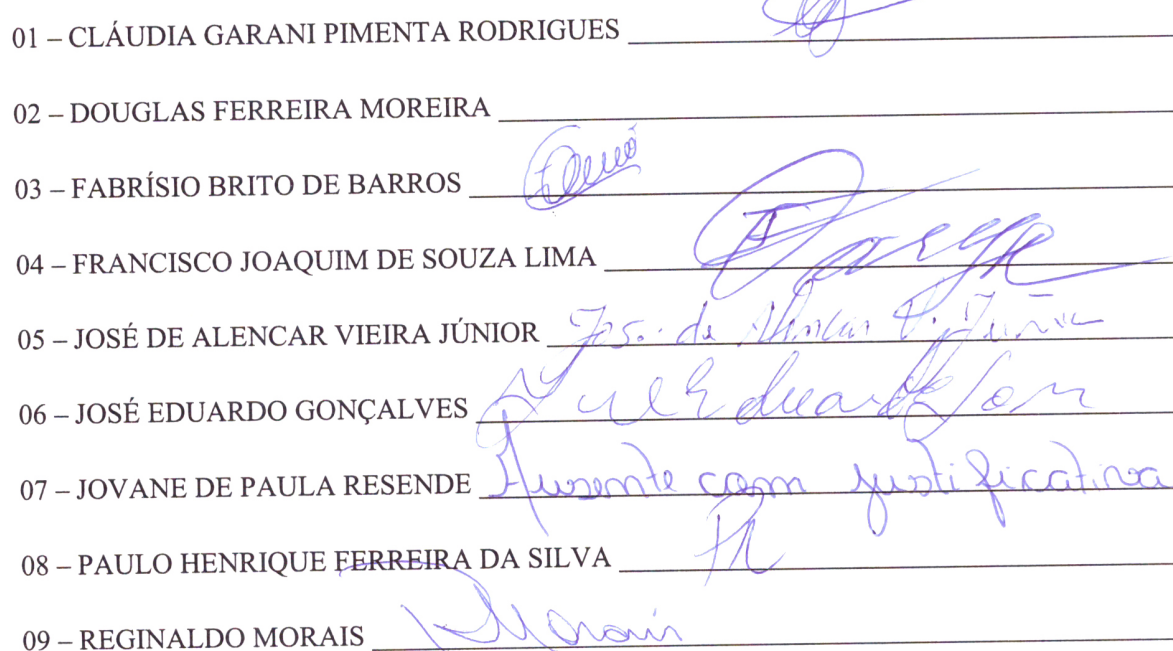 01 – CLÁUDIA GARANI PIMENTA RODRIGUES
02 – DOUGLAS FERREIRA MOREIRA
03 – FABRÍSIO BRITO DE BARROS
04 – FRANCISCO JOAQUIM DE SOUZA LIMA
05 – JOSÉ DE ALENCAR VIEIRA JÚNIOR
06 – JOSÉ EDUARDO GONÇALVES
07 – JOVANE DE PAULA RESENDE Ausente com justificativa
08 – PAULO HENRIQUE FERREIRA DA SILVA
09 – REGINALDO MORAIS Morais